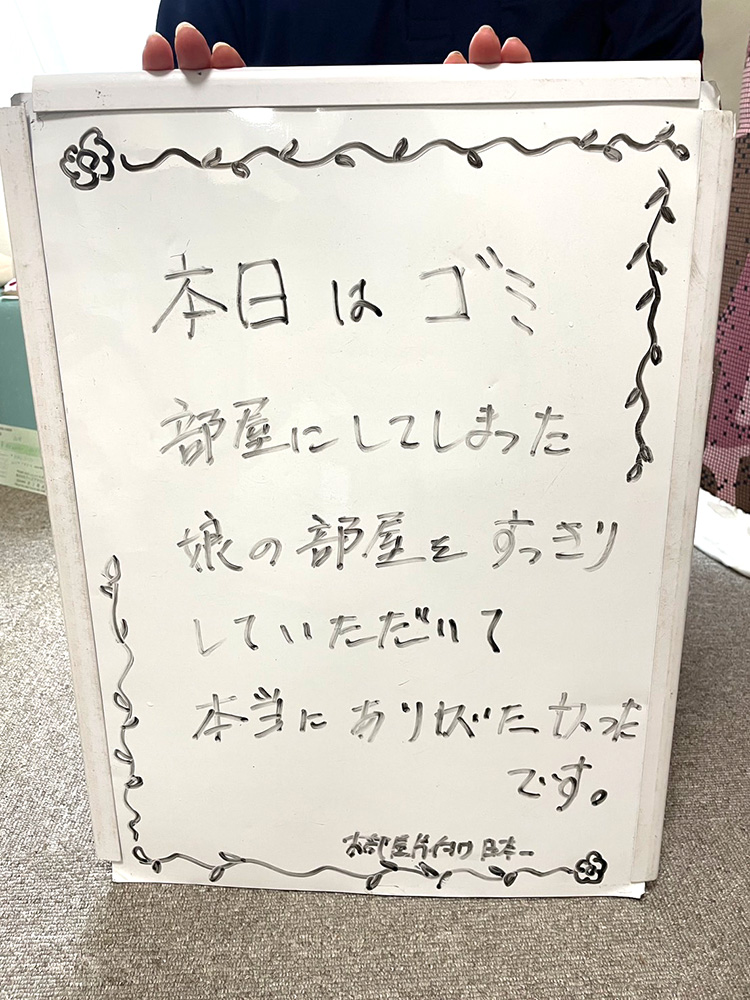 本日はゴミ
部屋にしてしまった
娘の部屋をすっきり
していただいて
本当にありがたかった
です。
お部屋片付け日本一